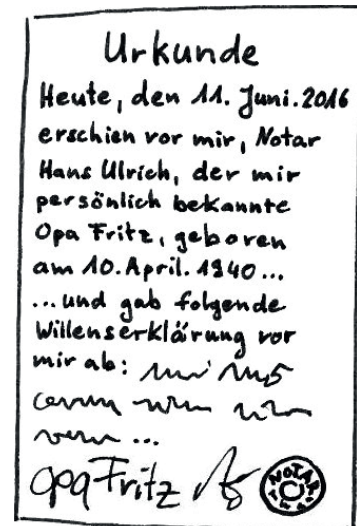 Urkunde
Heute, den 11. Juni. 2016
erschien vor mir, Notar
Hans Ulrich, der mir
persönlich bekannte
Opa Fritz, geboren
am 10. April. 1940...
...und gab folgende
Willenserklärung vor
mir ab:
...
Opa Fritz
NOTAR